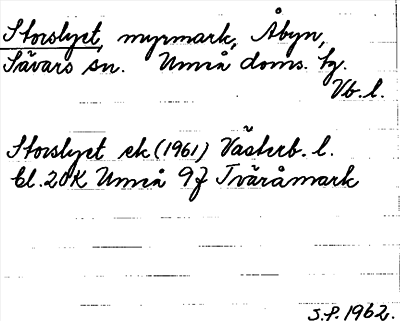 Storslyet, myrmark, Åbyn,
Sävars sn. Umeå doms. tg.
Vb. l.
Storslyet ek (1961) Västerb. l.
bl. 20K Umeå 9f Tväråmark
S.P. 1962.